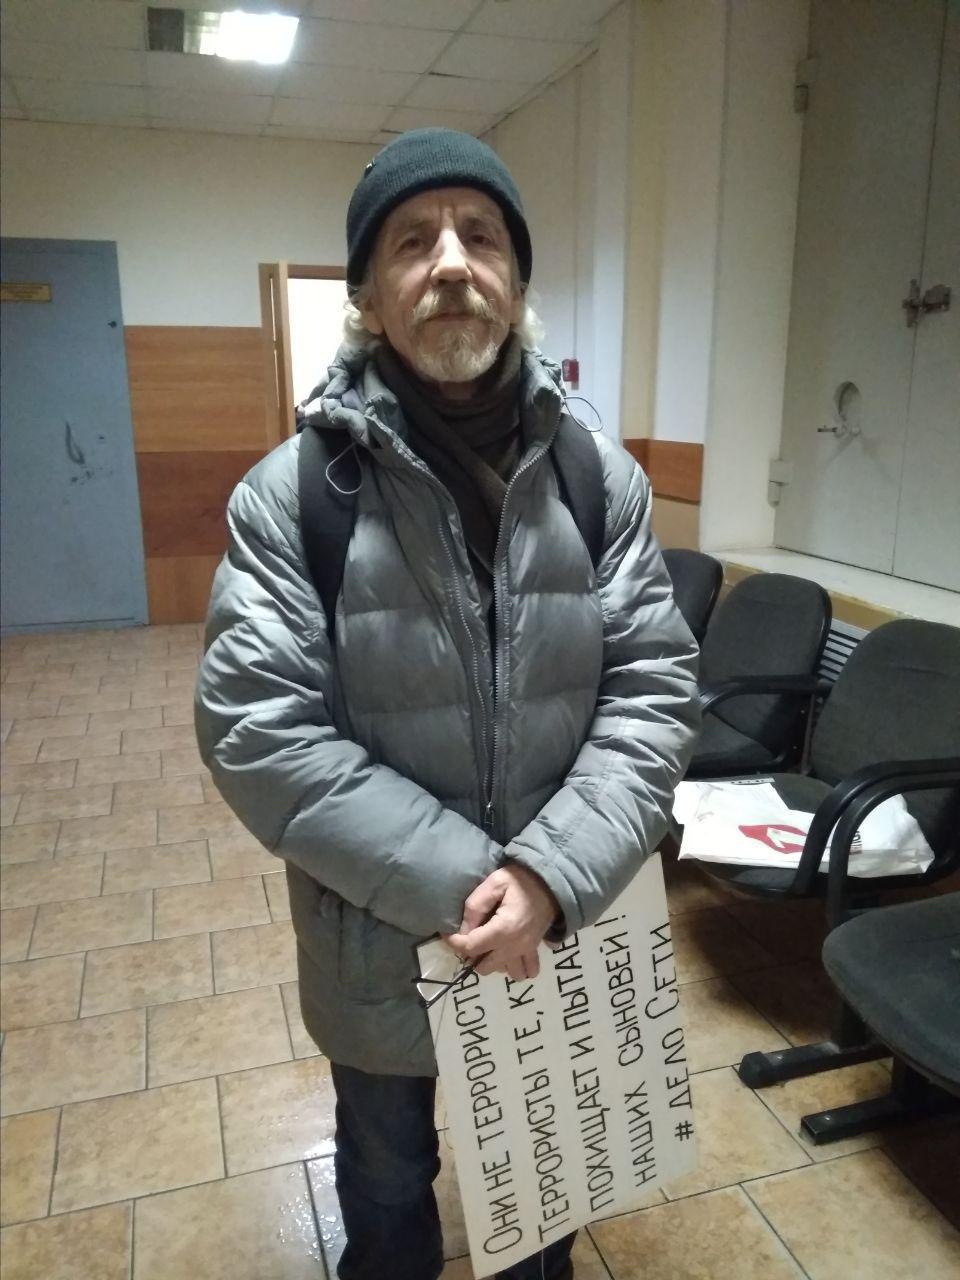 ОНИ НЕ ТЕРРОРИСТЫ
ТЕРРОРИСТЫ ТЕ,
ПОХИЩАЕТ И ПЫТАЕ
НАШИХ СЫНОВЕЙ!
# ДЕЛО СЕТИ